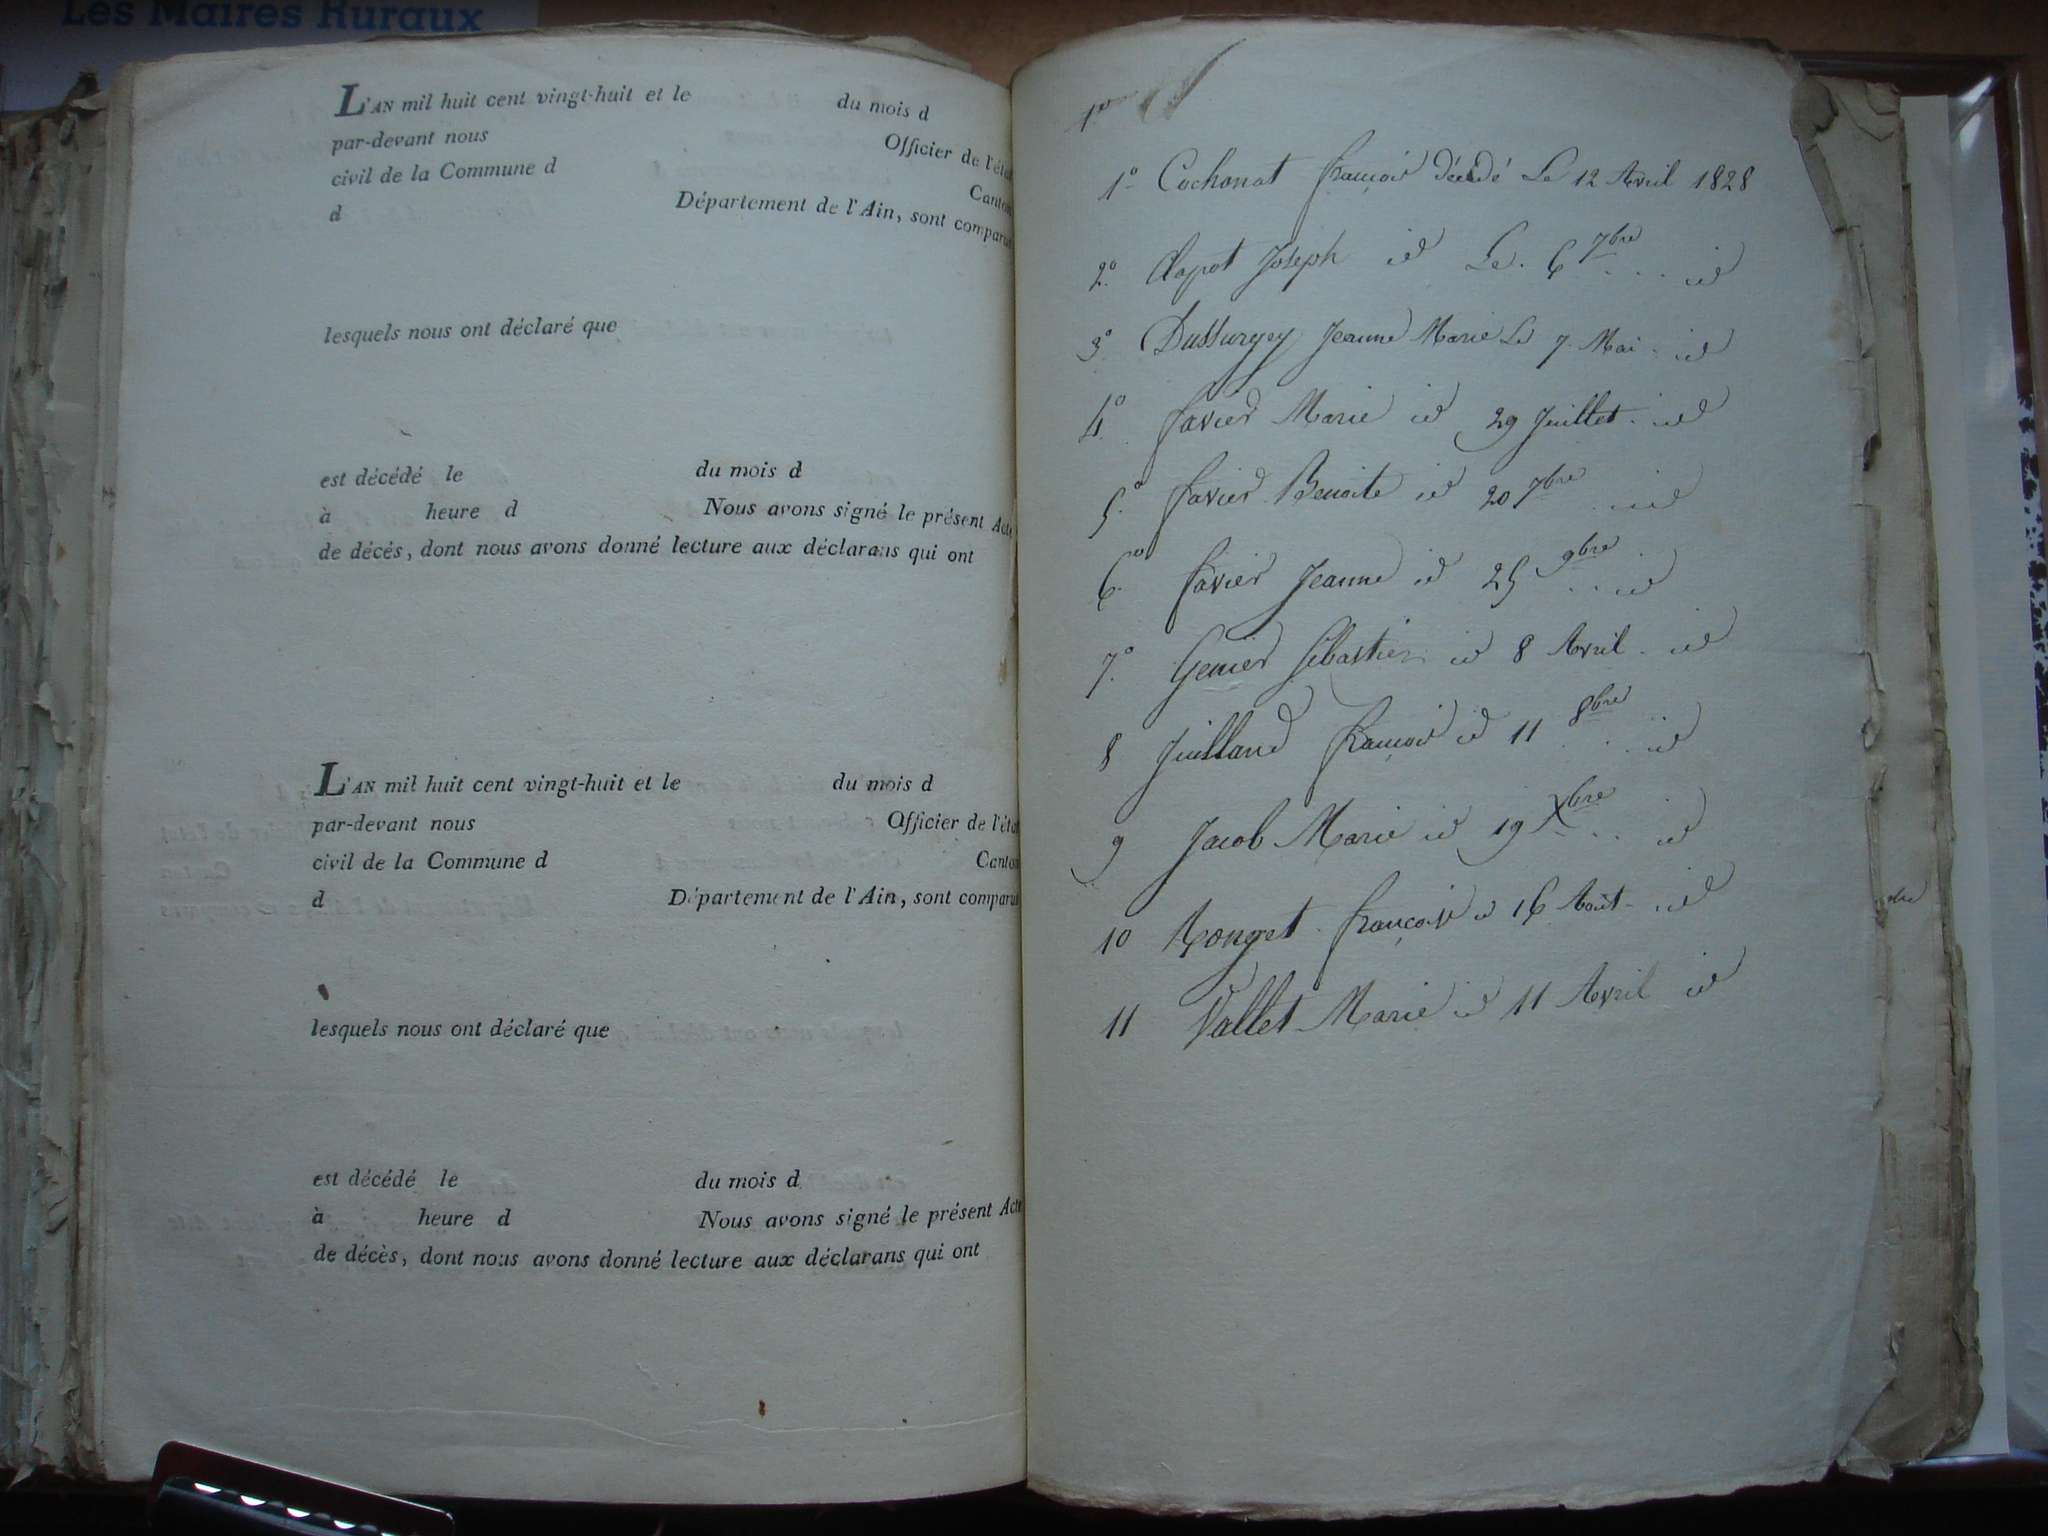 Les Maires Ruraux
L'AN mil huit cent vingt-huit et le du mois d
par-devant nous Officier de l'état
civil de la Commune d Canton
d Département de l'Ain, sont comparus
lesquels nous ont déclaré que
est décédé le du mois d
à heure d Nous avons signé le présent Acte
de décès, dont nous avons donné lecture aux déclarans qui ont
L'AN mil huit cent vingt-huit et le du mois d
par-devant nous Officier de l'état
civil de la Commune d Canton
d Département de l'Ain, sont comparus
lesquels nous ont déclaré que
est décédé le du mois d
à heure d Nous avons signé le présent Acte
de décès, dont nous avons donné lecture aux déclarans qui ont
1º
1º Cochonat françois décédé Le 12 Avril 1828
2º Clapot Joseph id Le 6 7bre id
3º Dussurgey Jeanne Marie Le 7 Mai id
4º favier Marie id 29 Juillet id
5º favier Benoite id 20 7bre id
6º favier Jeanne id 25 9bre id
7º Genier Sébastien id 8 Avril id
8 Juilland françois id 11 8bre id
9 Jacob Marie id 19 Xbre id
10 Ronget françois id 16 Août id
11 Vallet Marie id 11 Avril id